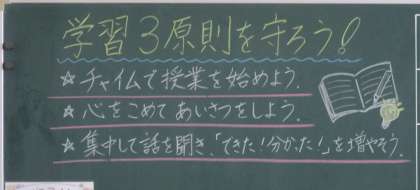 学習3原則を守ろう!
☆チャイムで授業を始めよう。
☆心をこめてあいさつをしよう。
☆集中して話を聞き、「できた!分かった!」を増やそう。